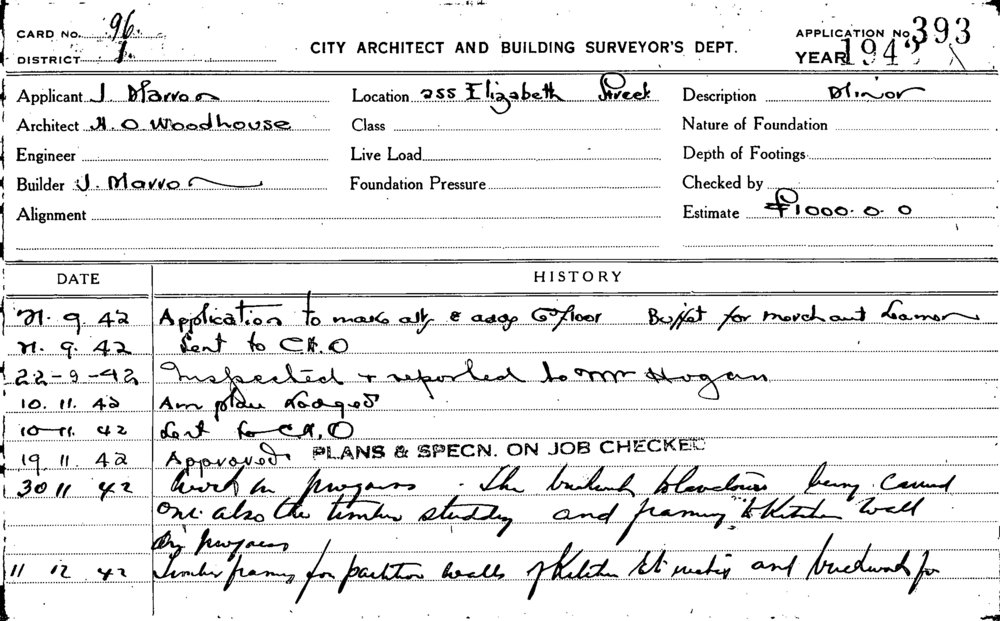 CARD No. 96
DISTRICT 1
CITY ARCHITECT AND BUILDING SURVEYOR'S DEPT.
APPLICATION No. 393
YEAR 1942
Applicant J. Marron
Location 255 Elizabeth Street
Description Minor
Architect H. O Woodhouse
Class
Nature of Foundation
Engineer
Live Load
Depth of Footings
Builder J. Marron
Foundation Pressure
Checked by
Alignment
Estimate £1000.0.0
DATE HISTORY
21. 9. 42 Application to make alts & adds floor Buffet for merchant
21. 9. 42 Sent to C.H.O
22-9-42 Inspected & reported to Mr Hogan
10. 11. 42 Am plan Lodged
10-11. 42 Sent to C.H.O
19. 11. 42 Approved PLANS & SPECN. ON JOB CHECKED
30 11 42 Work in progress. The brickwork being carried
one also the timber studding and framing to Kitchen wall
in progress
11 12 42 Timber framing for partition walls of Kitchen and brickwork for